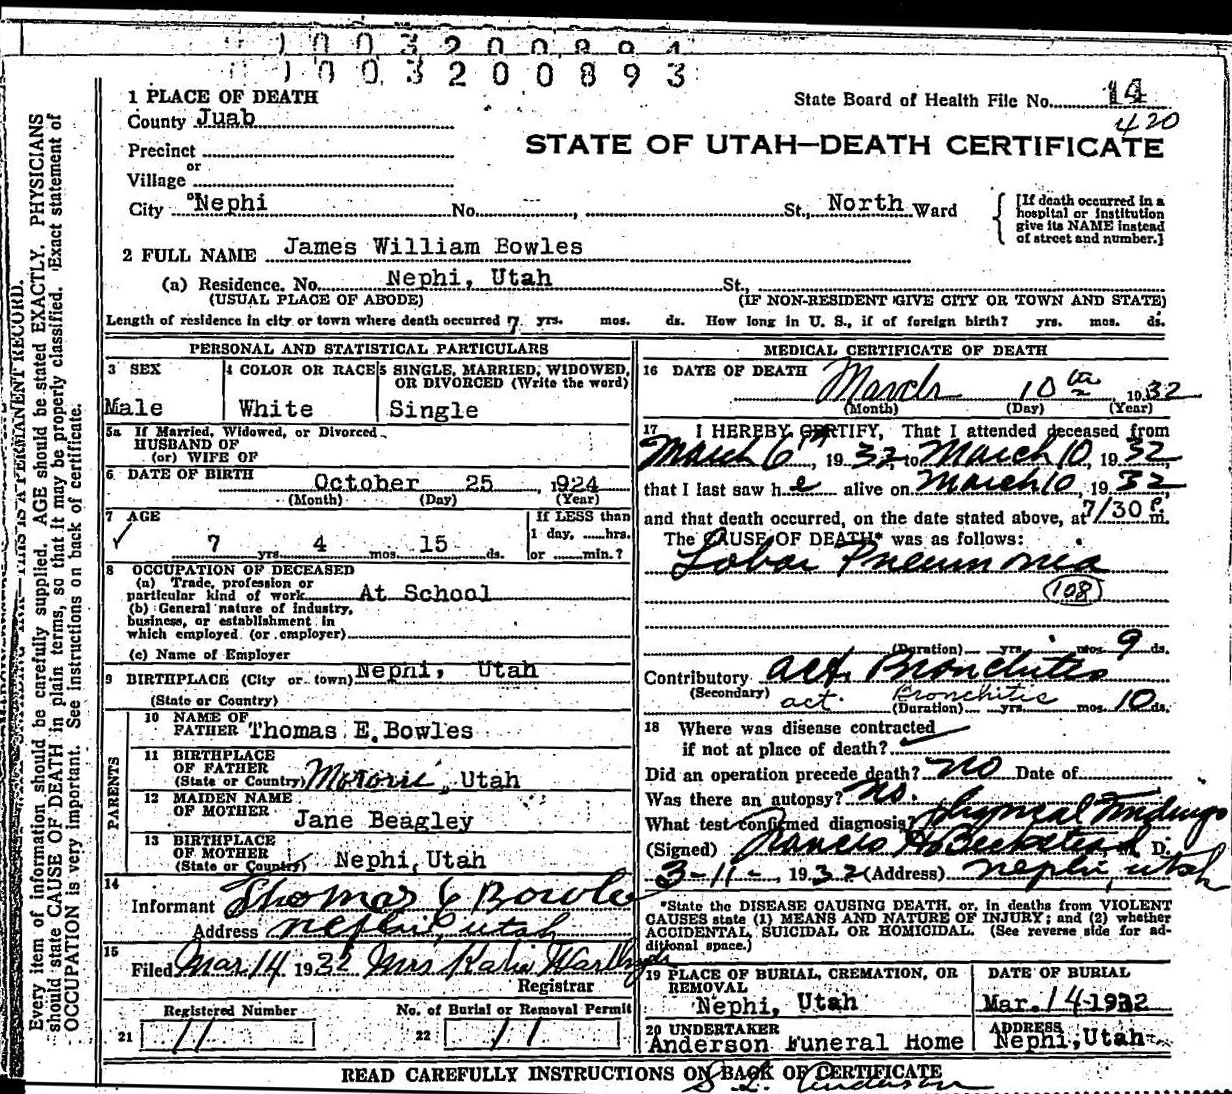 1003200893
1 PLACE OF DEATH
State Board of Health File No. 14
County Juab
420
STATE OF UTAH—DEATH CERTIFICATE
Precinct
or
Village
City Nephi No. St., North Ward
[If death occurred in a hospital or institution give its NAME instead of street and number.]
2 FULL NAME James William Bowles
(a) Residence. No. Nephi, Utah St.,
(USUAL PLACE OF ABODE) (IF NON-RESIDENT GIVE CITY OR TOWN AND STATE)
Length of residence in city or town where death occurred 7 yrs. mos. ds. How long in U. S., if of foreign birth? yrs. mos. ds.
PERSONAL AND STATISTICAL PARTICULARS
3 SEX
Male
4 COLOR OR RACE
White
5 SINGLE, MARRIED, WIDOWED,
OR DIVORCED (Write the word)
Single
5a If Married, Widowed, or Divorced
HUSBAND OF
(or) WIFE OF
6 DATE OF BIRTH October 25, 1924
(Month) (Day) (Year)
7 AGE
7 yrs. 4 mos. 15 ds.
If LESS than
1 day, ......hrs.
or ......min.?
8 OCCUPATION OF DECEASED
(a) Trade, profession or
particular kind of work At School
(b) General nature of industry,
business, or establishment in
which employed (or employer)
(c) Name of Employer
9 BIRTHPLACE (City or town) Nephi, Utah
(State or Country)
PARENTS
10 NAME OF
FATHER Thomas E. Bowles
11 BIRTHPLACE
OF FATHER
(State or Country) Moroni, Utah
12 MAIDEN NAME
OF MOTHER
Jane Beagley
13 BIRTHPLACE
OF MOTHER
(State or Country) Nephi, Utah
14
Informant Thomas E Bowles
Address Nephi, Utah
15
Filed Mar 14 1932 Mrs Katie
Registrar
Registered Number
21 11
No. of Burial or Removal Permit
22 11
MEDICAL CERTIFICATE OF DEATH
16 DATE OF DEATH
March 10th 1932
(Month) (Day) (Year)
17 I HEREBY CERTIFY, That I attended deceased from
March 6th, 1932 to March 10, 1932
that I last saw h e alive on March 10, 1932,
and that death occurred, on the date stated above, at 7/30 P. m.
The CAUSE OF DEATH* was as follows:
Lobar Pneumonia
108
(Duration) yrs. mos. 9 ds.
Contributory act. Bronchitis
(Secondary) act. Bronchitis
(Duration) yrs. mos. 10 ds.
18 Where was disease contracted
if not at place of death?
Did an operation precede death? no Date of
Was there an autopsy? No.
What test confirmed diagnosis? Physical Findings
(Signed) M. D.
3-11-, 1932 (Address) Nephi, Utah
*State the DISEASE CAUSING DEATH, or, in deaths from VIOLENT
CAUSES state (1) MEANS AND NATURE OF INJURY; and (2) whether
ACCIDENTAL, SUICIDAL OR HOMICIDAL. (See reverse side for ad-
ditional space.)
19 PLACE OF BURIAL, CREMATION, OR
REMOVAL
Nephi, Utah
DATE OF BURIAL
Mar. 14-1932
20 UNDERTAKER
Anderson Funeral Home
ADDRESS
Nephi, Utah
READ CAREFULLY INSTRUCTIONS ON BACK OF CERTIFICATE
Anderson
Every item of information should be carefully supplied. AGE should be stated EXACTLY. PHYSICIANS
should state CAUSE OF DEATH in plain terms, so that it may be properly classified. Exact statement of
OCCUPATION is very important. See instructions on back of certificate.
THIS IS A PERMANENT RECORD.